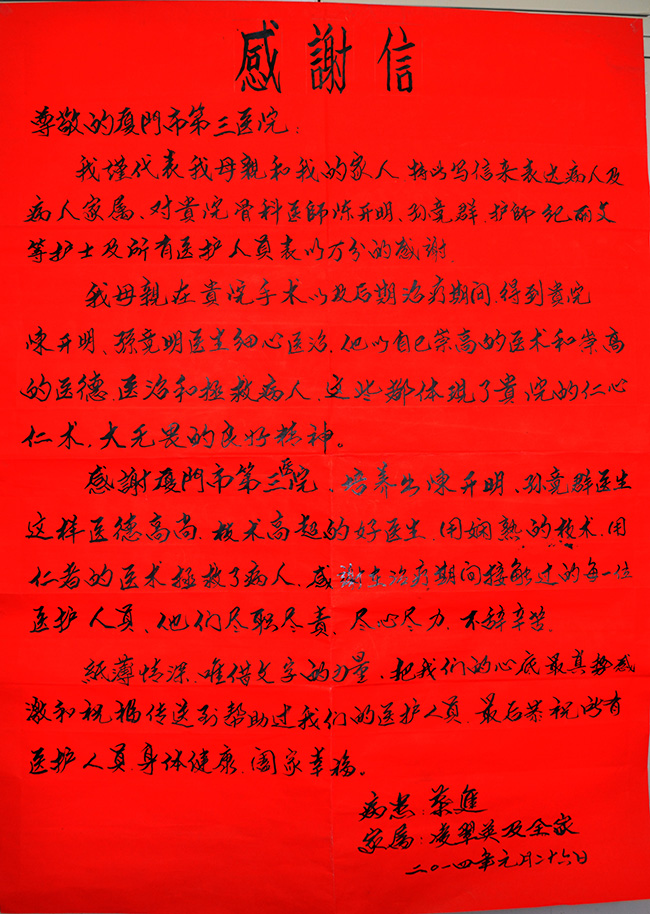 感謝信
尊敬的厦門市第三医院:
我谨代表我母親和我的家人,特此写信来表达病人及
病人家属、对貴院骨科医師陈开明、孙竞群、护師纪丽文
等护士及所有医护人員表以万分的感謝.
我母親在貴院手术以及后期治疗期间,得到貴院
陳开明、孫竞明医生细心医治,他以自已崇高的医术和崇高
的医德,医治和拯救病人,这些都体現了貴院的仁心
仁术,大无畏的良好精神。
感謝厦門市第三医院、培养出陳开明、孙竞群医生
这样医德高尚,技术高超的好医生,用娴熟的技术,用
仁者的医术拯救了病人,感謝在治疗期间接触过的每一位
医护人員、他们尽职尽责、尽心尽力,不辞辛苦.
紙薄情深,唯借文字的力量、把我们的心底最真挚感
激和祝福传送到帮助过我们的医护人員,最后恭祝所有
医护人員,身体健康,阖家幸福。
病患:蔡進
家属:凌翠英及全家
二〇一四年元月二十六日